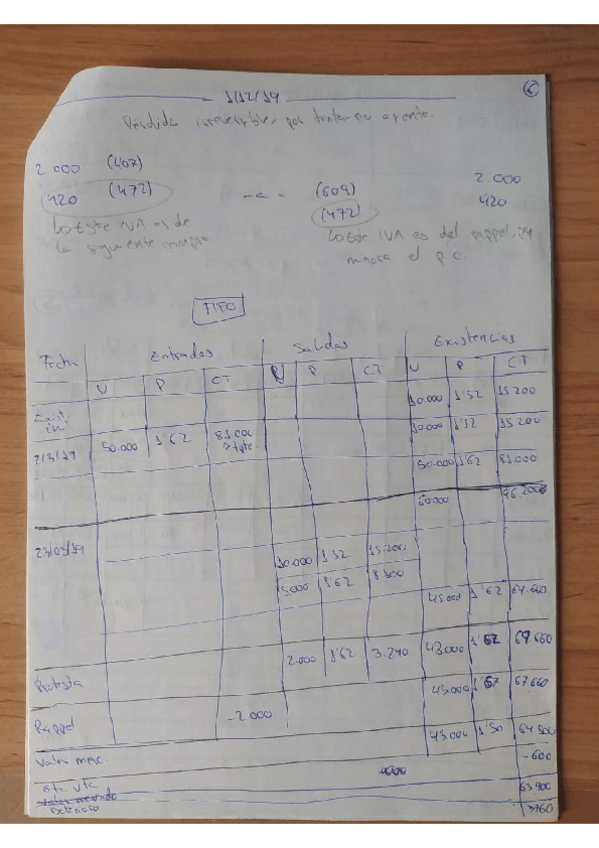 1/12/19
6
Pérdida irreversible, por tanto no apunte.
2.000 (407)
420 (472) — a — (609) 2.000
(472) 420
Lo este IVA es de la siguiente compra
Lo este IVA es del rappel, minora el p.c.
FIFO
Fecha Entradas Salidas Existencias
U P CT U P CT U P CT
Exist. in. 10.000 1'52 15.200
2/3/19 50.000 1'62 81.000 10.000 1'52 15.200
50.000 1'62 81.000
60.000 96.200
23/03/19
10.000 1'52 15.200
5.000 1'62 8.100
45.000 1'62
2.000 1'62 3.240 43.000 1'62 69.660
Rappel -2.000 43.000 1'57 67.660
Valor merc. 43.000 1'50 64.500
-600
Vta 63.900
Deterioro 3760